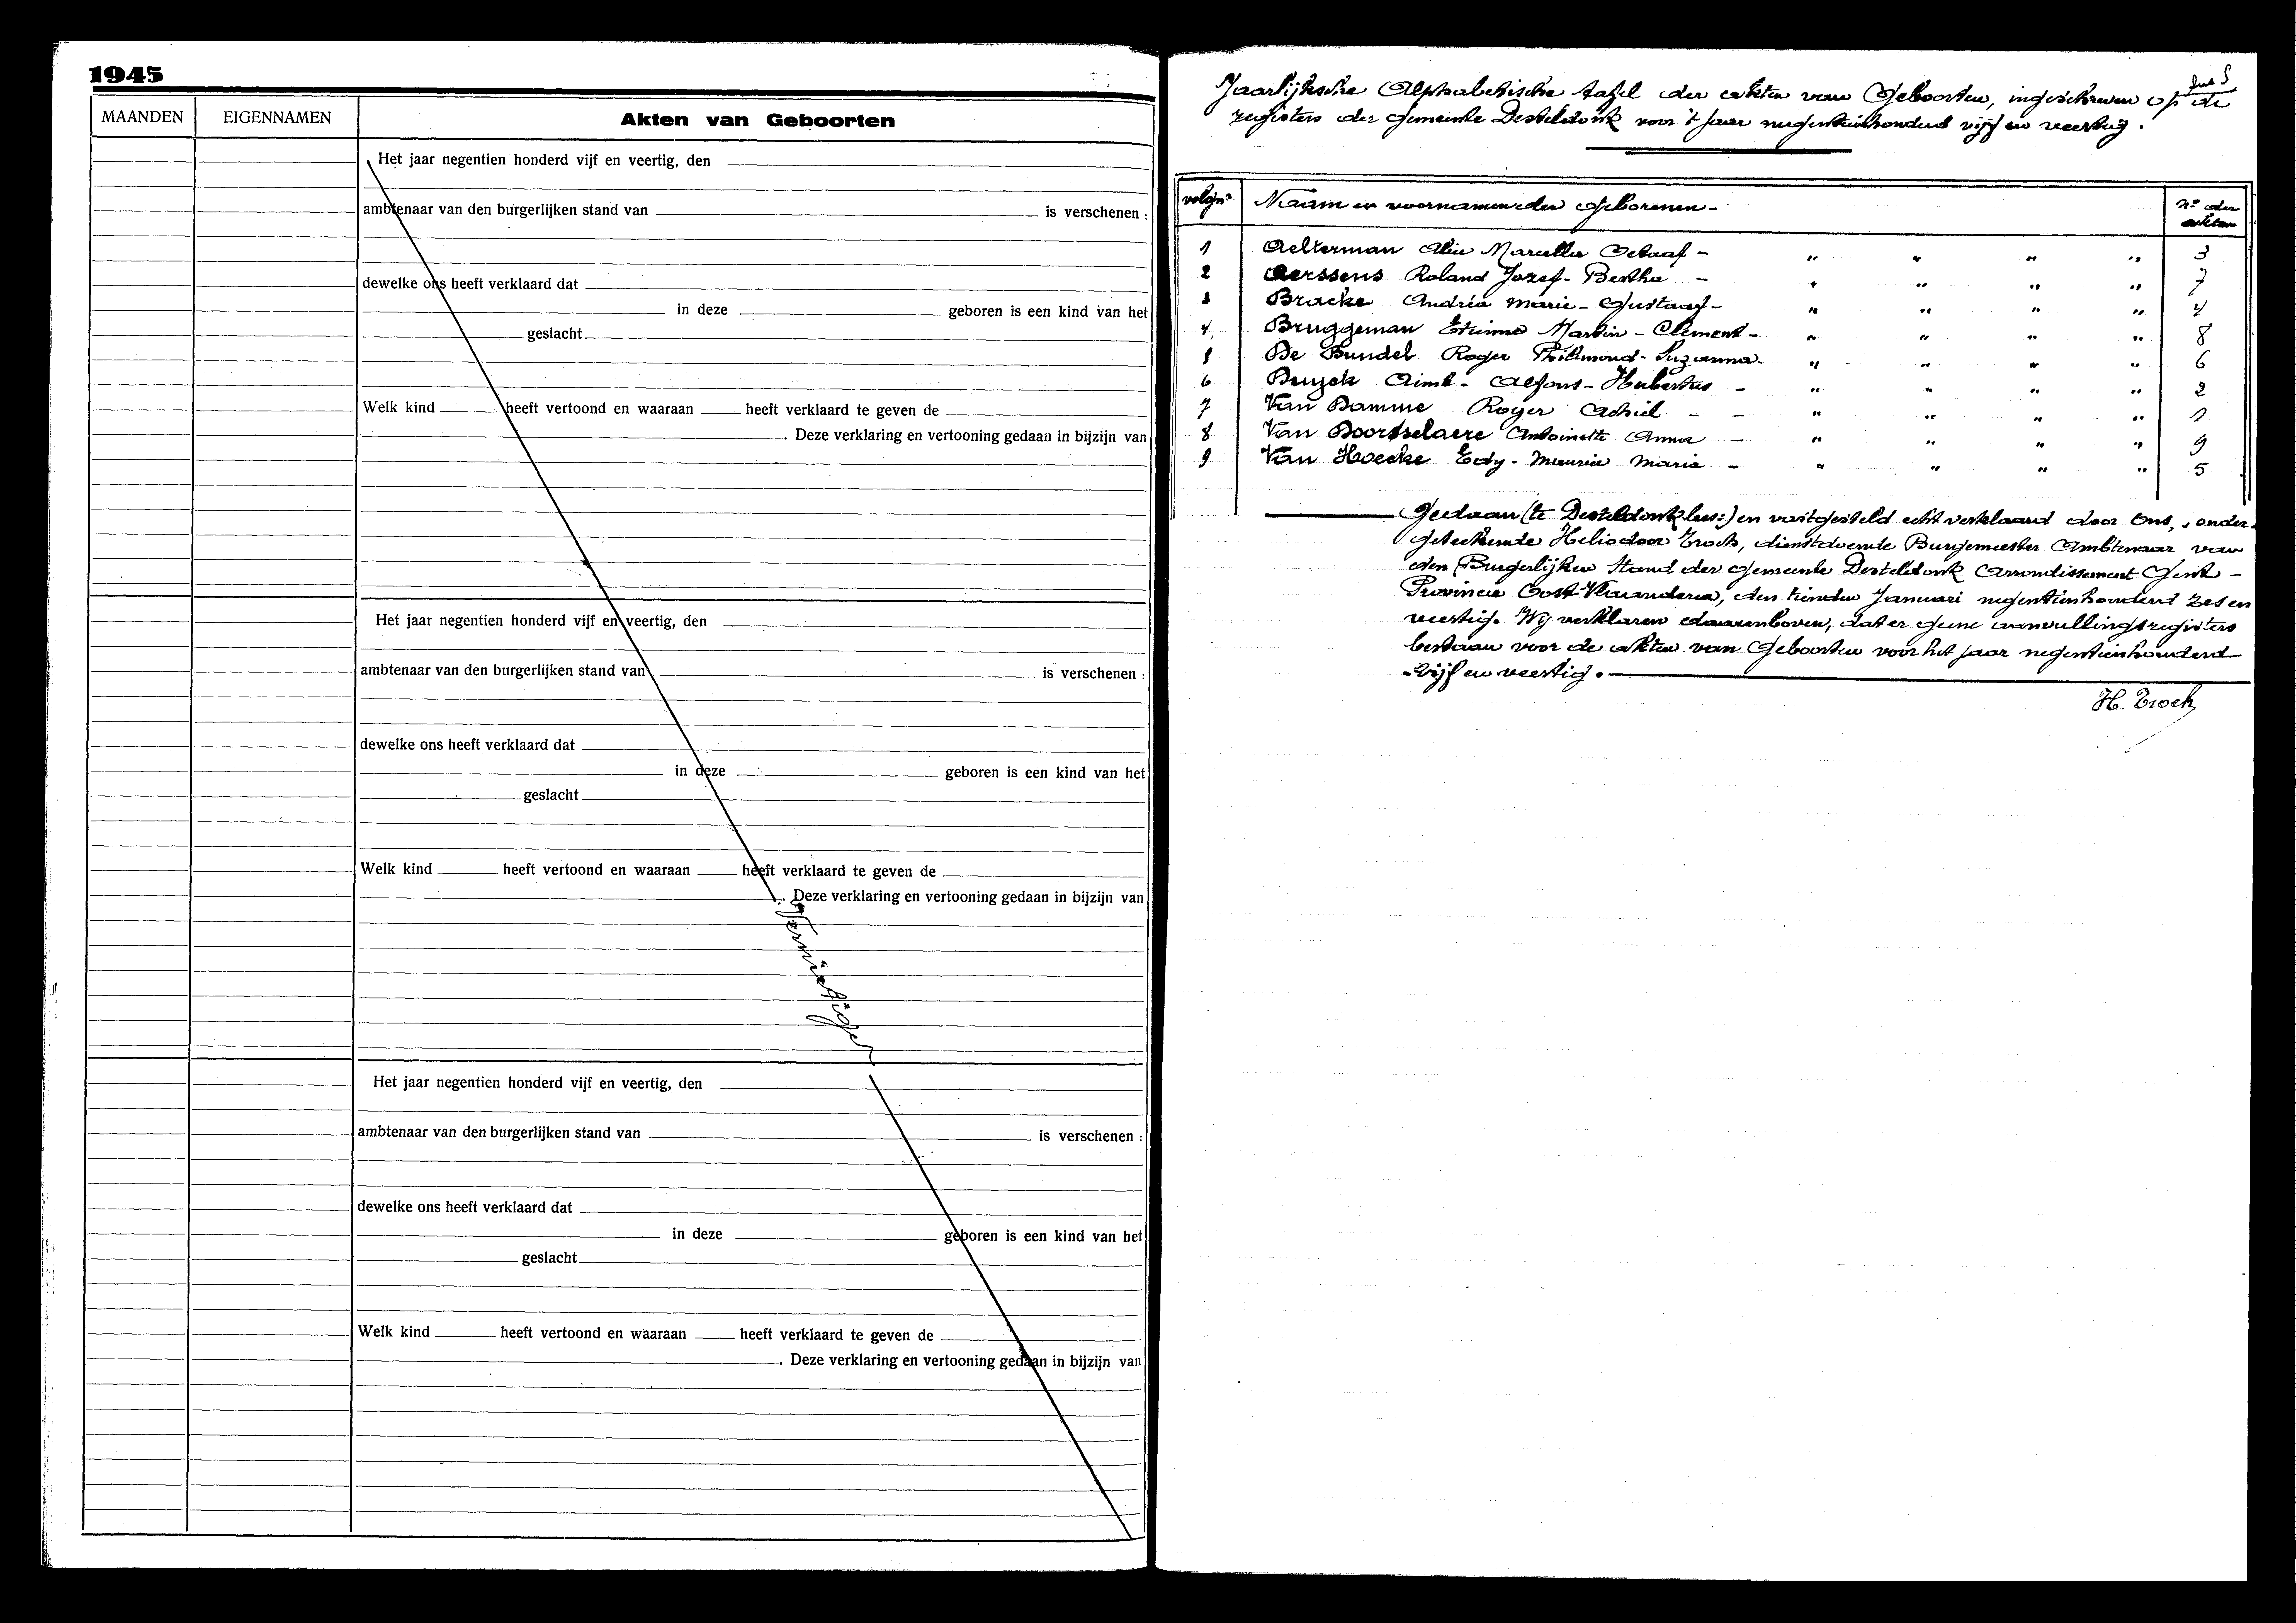 1945
MAANDEN EIGENNAMEN Akten van Geboorten
Het jaar negentien honderd vijf en veertig, den
ambtenaar van den burgerlijken stand van is verschenen :
dewelke ons heeft verklaard dat
in deze geboren is een kind van het
geslacht
Welk kind heeft vertoond en waaraan heeft verklaard te geven de
. Deze verklaring en vertooning gedaan in bijzijn van
Het jaar negentien honderd vijf en veertig, den
ambtenaar van den burgerlijken stand van is verschenen :
dewelke ons heeft verklaard dat
in deze geboren is een kind van het
geslacht
Welk kind heeft vertoond en waaraan heeft verklaard te geven de
. Deze verklaring en vertooning gedaan in bijzijn van
Vernietigd
Het jaar negentien honderd vijf en veertig, den
ambtenaar van den burgerlijken stand van is verschenen :
dewelke ons heeft verklaard dat
in deze geboren is een kind van het
geslacht
Welk kind heeft vertoond en waaraan heeft verklaard te geven de
. Deze verklaring en vertooning gedaan in bijzijn van
Jaarlijksche Alphabetische tafel der akten van Geboorten, ingeschreven op de
registers der Gemeente Desteldonk voor 't jaar negentienhonderd vijf en veertig.
volgnr Naam en voornamen der Geborenen - Nr der akten
1 Aelterman Alice Marcella Octaaf - " " " " 3
2 Aerssens Roland Jozef - Bertha - " " " " 7
3 Bracke Andréa Marie - Gustaaf - " " " " 4
4 Bruggeman Etienne Martin - Clement - " " " " 8
5 De Bundel Roger Philemond - Suzanna - " " " " 6
6 Buyck Aimé - Alfons - Hubertus - " " " " 2
7 Van Damme Roger Achiel - - " " " " 1
8 Van Doorsselaere Antoinette Anna - " " " " 9
9 Van Hoecke Eddy - Maurice Maria - " " " " 5
Gedaan (te Desteldonk lees:) en vastgesteld echt verklaard door Ons, onder-
geteekende Heliodoor Troch, dienstdoende Burgemeester Ambtenaar van
den Burgerlijken Stand der Gemeente Desteldonk Arrondissement Gent -
Provincie Oost-Vlaanderen, den tienden Januari negentienhonderd zes en
veertig. Wij verklaren daarenboven, dat er geene aanvullingsregisters
bestaan voor de akten van Geboorten voor het jaar negentienhonderd
- vijf en veertig. -
H. Troch